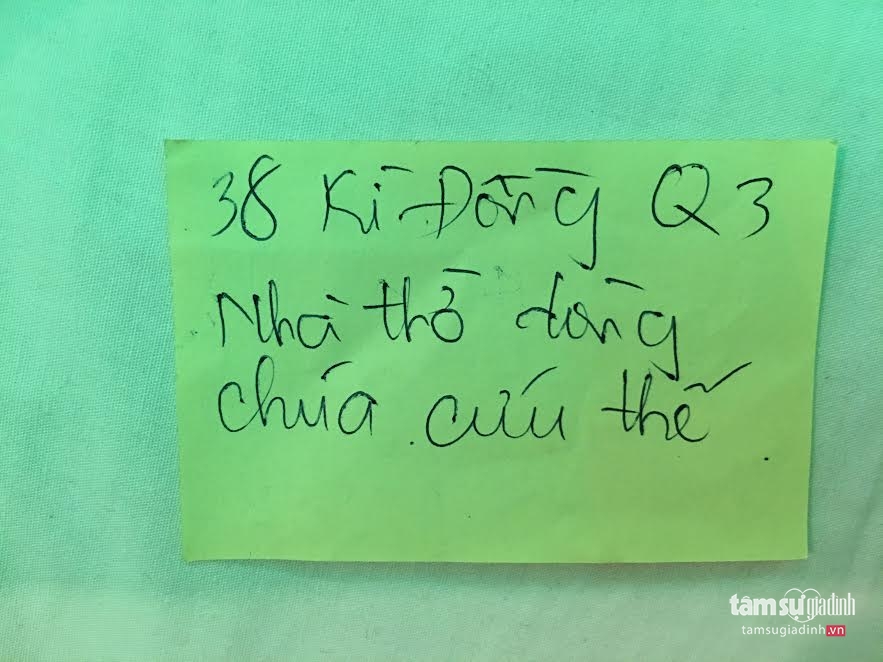 38 Kì Đồng Q3
Nhà thờ dòng
chúa cứu thế.
tâm sự giađình
tamsugiadinh.vn